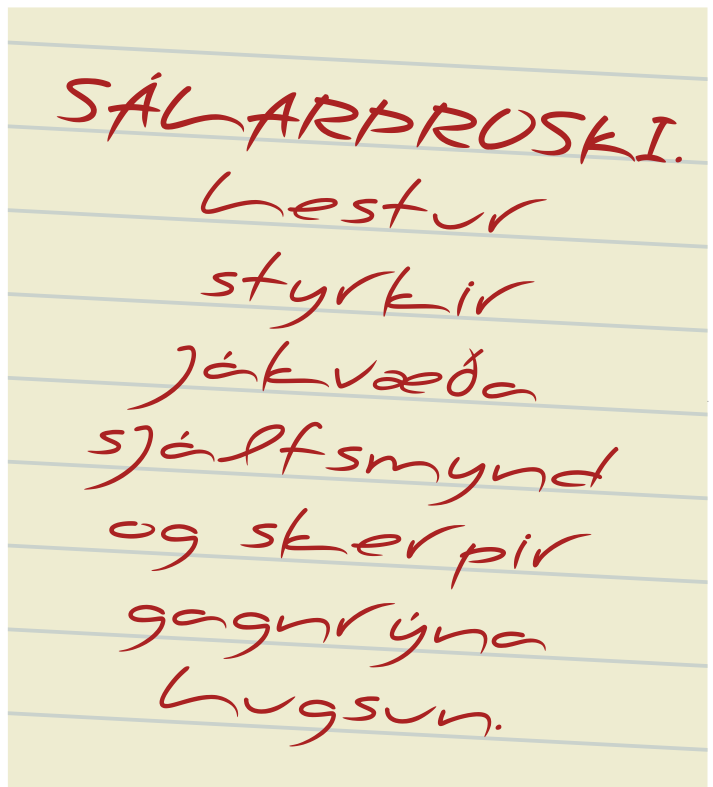 SÁLARÞROSKI.
Lestur
styrkir
jákvæða
sjálfsmynd
og skerpir
gagnrýna
hugsun.